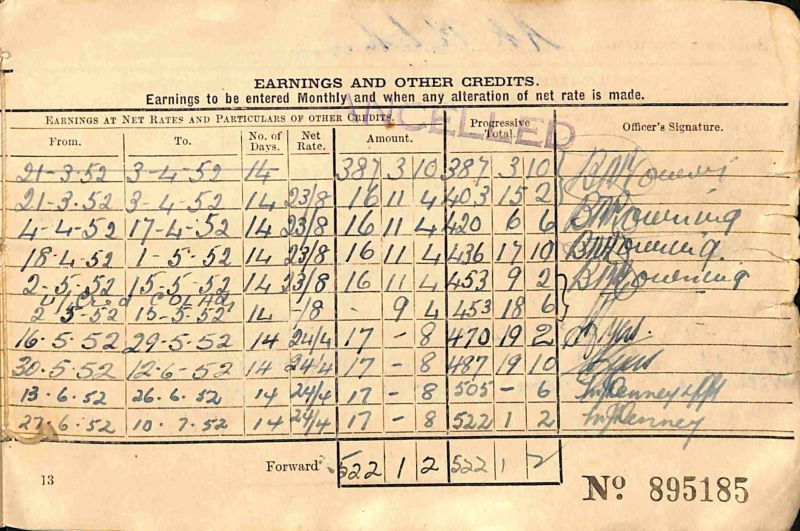 EARNINGS AND OTHER CREDITS.
Earnings to be entered Monthly and when any alteration of net rate is made.
CANCELLED
EARNINGS AT NET RATES AND PARTICULARS OF OTHER CREDITS.
From. To. No. of Days. Net Rate. Amount. Progressive Total. Officer's Signature.
21-3-52 3-4-52 14 387 3 10 387 3 10
21-3-52 3-4-52 14 23/8 16 11 4 403 15 2
4-4-52 17-4-52 14 23/8 16 11 4 420 6 6
18-4-52 1-5-52 14 23/8 16 11 4 436 17 10
2-5-52 15-5-52 14 23/8 16 11 4 453 9 2
2 5-52 15-5-52 14 -/8 - 9 4 453 18 6
16-5-52 29-5-52 14 24/4 17 - 8 470 19 2
30-5-52 12-6-52 14 24/4 17 - 8 487 19 10
13.6.52 26.6.52 14 24/4 17 - 8 505 - 6
27.6.52 10.7.52 14 24/4 17 - 8 522 1 2
Forward 522 1 2 522 1 2
13
No 895185